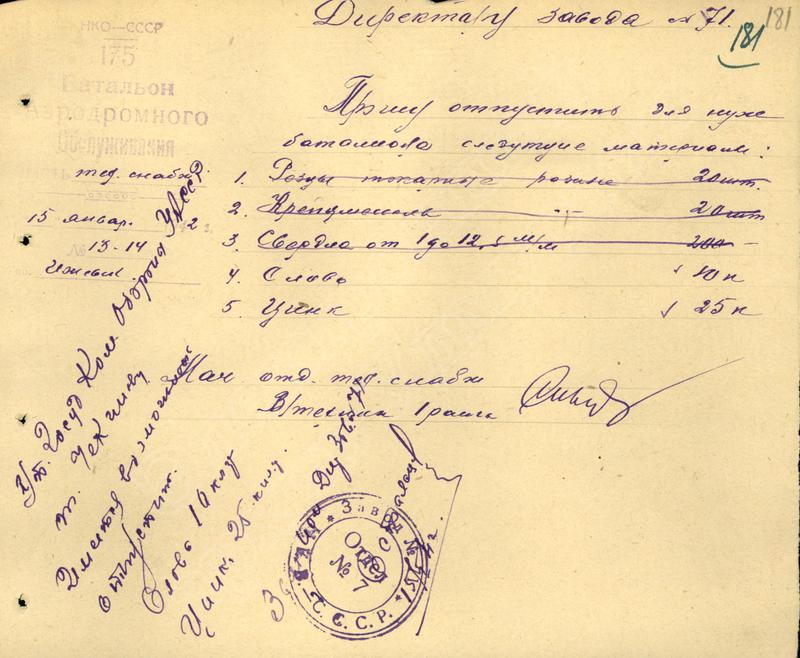 181
181
Директору завода № 71.
НКО—СССР
175
Батальон
Аэродромного
Обслуживания
тех. снабж.
15 январ. 42 г.
№ 13-14
Ижевск.
Прошу отпустить для нужд
баталиона следующие материалы:
1. Резцы токарные разные 20 шт.
2. 20 шт
3. Сверла от 1 до 12,5 м/м 200 -
4. Олово 10 к
5. Цинк 25 к
Нач отд. тех. снабж
В/техник 1 ранга
Госуд Ком Обороны УАССР
т. Чекинову
Имеется возможность
отпустить.
Олово 10 клгр
Цинк. 25 килг.
Зам Дир Завода 71
15/I 42 г.
Завод № 71
С.С.С.Р.
Отдел
№ 7